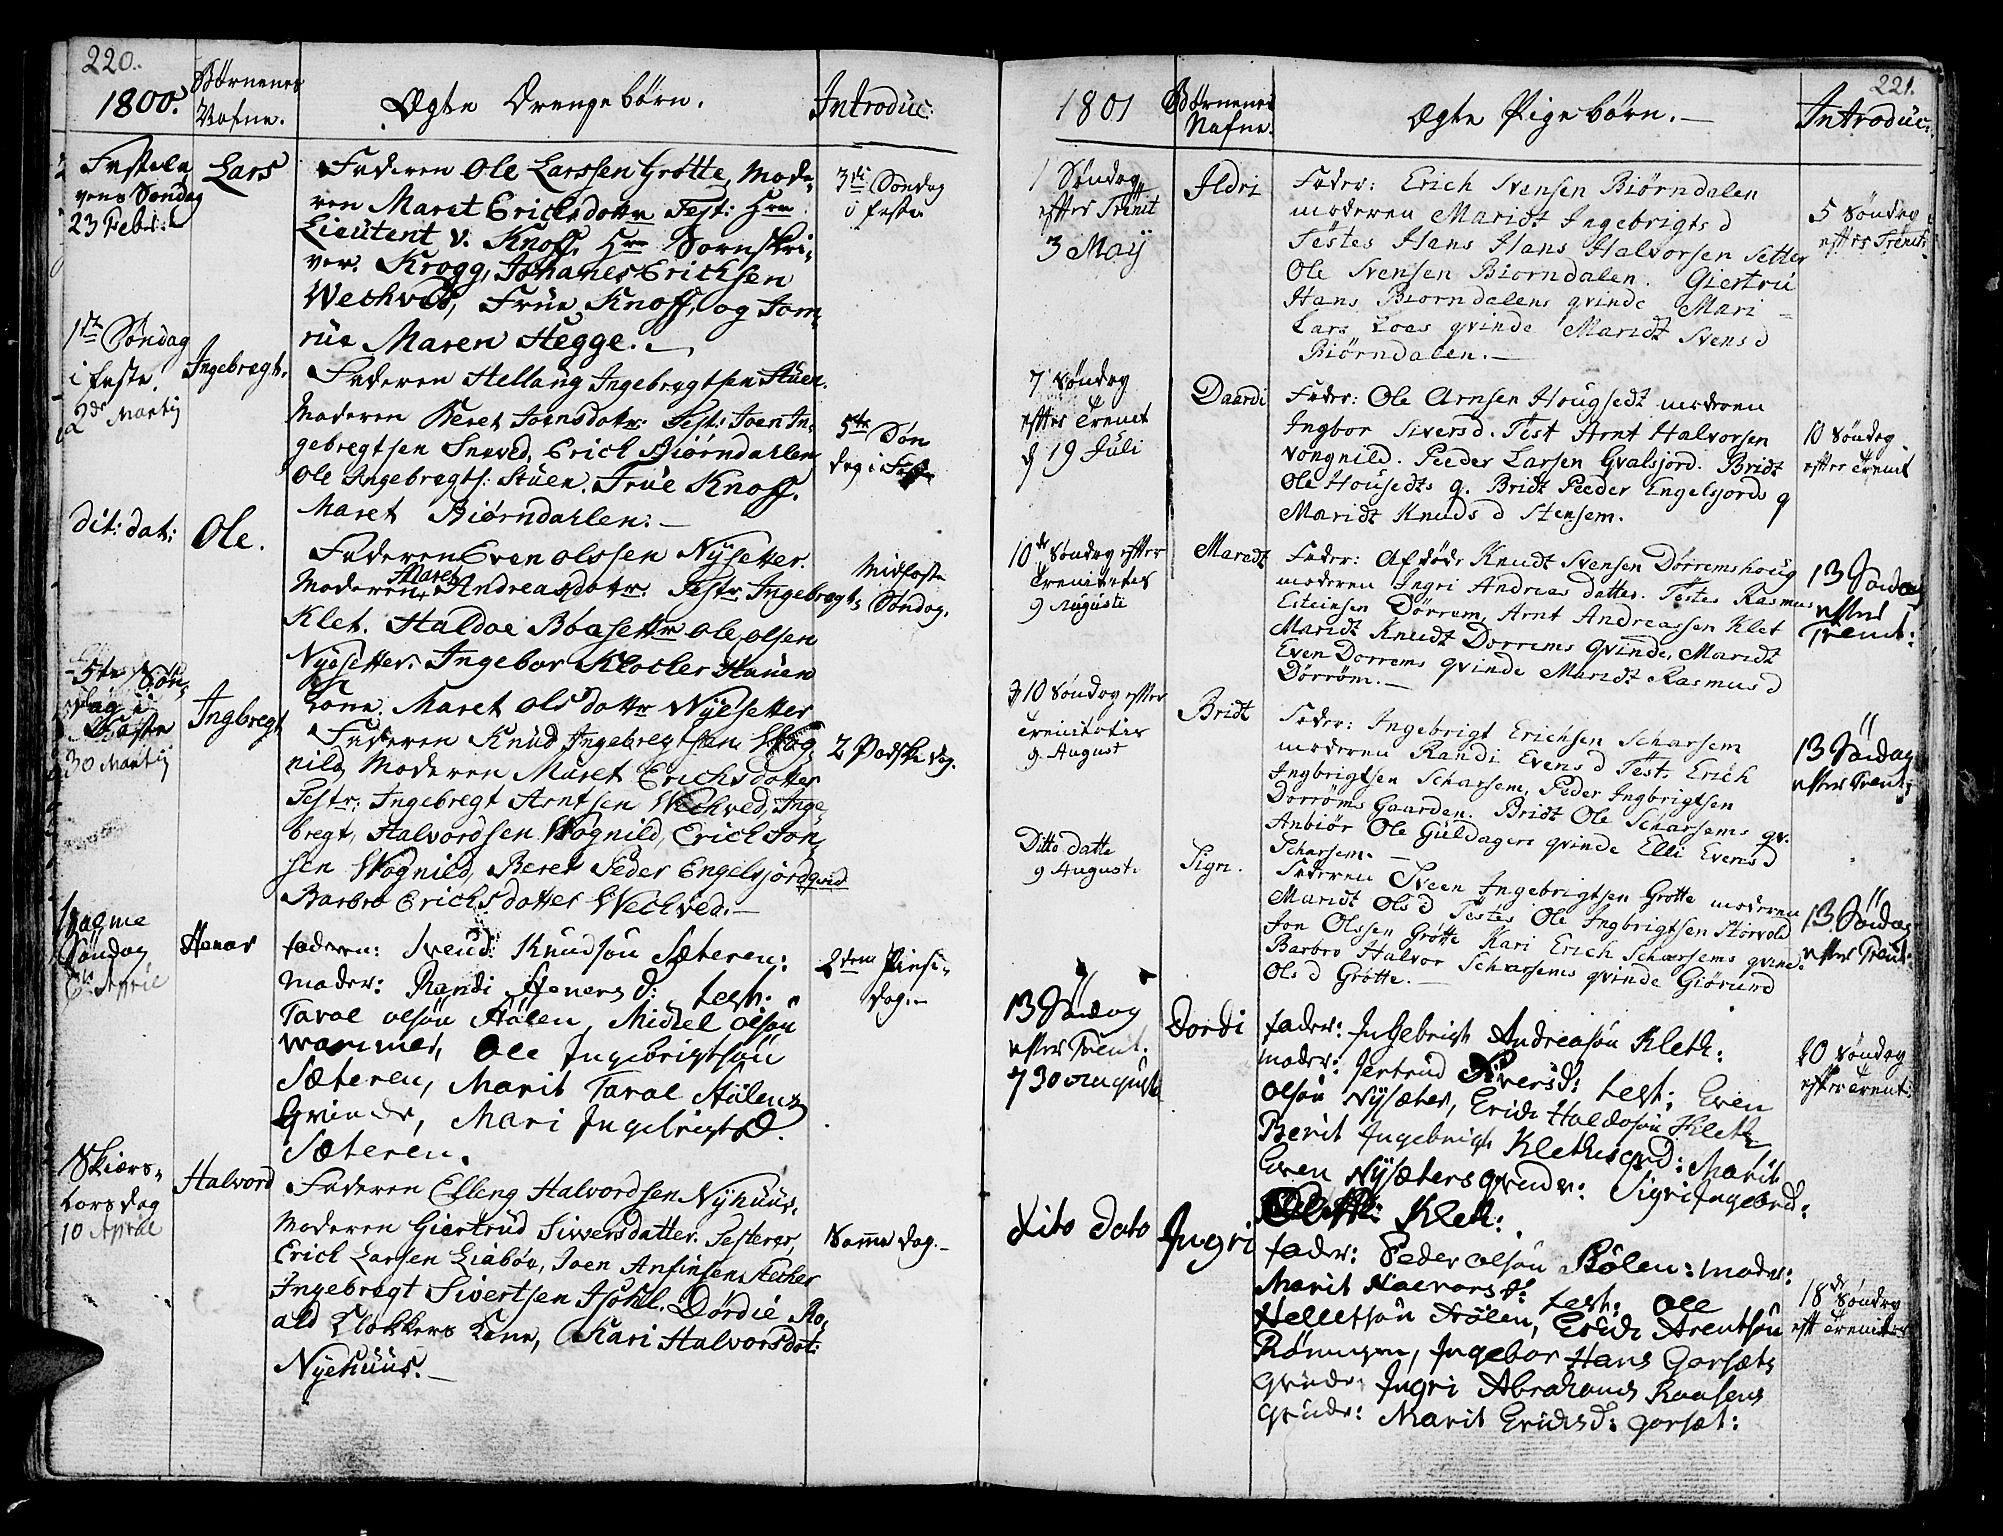 220.
1800.
Børnenes
Nafne.
Ægte Drengebørn.
Introduc:
Fastela
vens Søndag
23 Febr:
Lars
Faderen Ole Larssen Grøtte, Mode-
ren Maret Erichsdottr Test: Hrr
Lieutent v. Knoff, Hrr Sornskri-
ver Krogg, Johanes Erichsen
Wechveds, Frue Knoff, og Jom-
frue Maren Hegge.
3die Søndag
i Faste
1ste Søndag
i Faste.
2de Martij
Ingebregt.
Faderen Hellaug Ingebrygtsen Stuen.
Moderen Beret Joensdotr: Test: Joen In-
gebregtsen Snøved, Erich Biørndahlen
Ole Ingebregts: Stuen. Frue Knoff.
Maret Biørndahlen.
5te Søn
dag i Faste
dit: dat:
Ole.
Faderen Even Olssen Nysetter.
Moderen Maret Andreasdottr. Testr Ingebregt
Klet. Haldoe Boesettr Ole Olsen
Nyesetter. Ingebor Klocker Hauen
Kone. Maret Olsdottr Nyesetter
Midfaste
Søndag.
5te Søn,
dag i
Faste
30 Martij
Ingbregt
Faderen Knud Ingebregtsen Skog,
nild, Moderen Maret Erichsdotter
Testr: Ingebregt Arntsen Wechved, Inge
bregt, Halvordsen Skognild, Erich Jon,
sen Skognild, Beret Peder Engelsjord qvind
Barbro Erichsdotter Wechved.
2 Paaske Dag.
Palme
Søndag
6te Aprile
Henar
fadern: Svend Knudsøn Sæteren:
moder: Randi Heners d: test:
Taral olsøn Hølen, Mickel olsøn
wammer, Ole Ingebrigtsøn
Sæteren, Marit Taral Hølens
Qvinde, Mari Ingebrigts D.
Sæteren.
2den Pinse-
dag.
Skiærs-
torsdag
10 Aprile
Halvord
Faderen Elleng Halvordsen Nyhuus,
Moderen Giertrud Siversdatter. Testerer,
Erich Larsen Liabøe, Joen Anfinsen Aeker
Ingebregt Sivertsen Isohl. Dørdie Ro,
ald Klokkers Kone, Kari Halvorsdat:
Nyehuus.
Samme Dag.
221.
1801
Børnenes
Nafne.
Ægte Pigebørn.
Introduc:
1 Søndag
efter Trenit
3 May
Ildri
Fader: Erich Svensen Biørndalen
moderen Maridt Ingebrigts d
Testes Hans Hans Halvorsen Setter
Ole Svensen Biorndalen. Giertru
Hans Biorndalens qvinde Mari
Lars Loes qvinde Maridt Svens d
Biørndalen.
5 Søndag
efter Trenit:
7 Søndag
efter Trenit
d 19 Juli
Daardi
Fader: Ole Arnsen Hougsedt moderen
Ingbor Sivers d. Test Arnt Halvorsen
Vongnild. Peeder Larsen Gvalsjord. Bridt
Ole Housedts q. Bridt Peeder Engelsjords q
Maridt Knuds d Stensem.
10 Søndag
efter Trenit
10de Søndag efter
Trenitetes
9 Augusti
Maredt
Fader: Afdøde Knudt Svensen Dørremshoug
moderen Ingri Andreas datter. Testes Rasmus
Esteinsen Dørrem, Arnt Andreassen Klet
Maridt Knudt Dorrems qvinde, Maridt
Even Dorrems qvinde Maridt Rasmus d
Dørrøm.
13 Søndag
efter
Trenit:
d 10 Søndag efter
Trenitatis
9 August
Bridt
Fader: Ingebrigt Erichsen Scharsem
moderen Randi Evens d Test: Erich
Ingbrigtsen Scharsem, Peder Ingbrigtsen
Dorrøms Gaarden. Bridt Ole Scharsems qv.
Anbiør Ole Guldagers qvinde Elli Evens d
Scharsem.
13 Søndag
efter Trenit:
Ditto datte
9 August:
Sign.
Faderen Sveen Ingebrigtsen Grotte moderen
Maridt Ols d Testes Ole Ingbrigtsen Storvold
Jon Olssen Grøtte Kari Erich Scharsems qvind.
Barbro Halvor Scharsems qvinde Giørund
Ols d Grøtte.
13 Søndag
efter Trenit:
13 Søndag
efter Trenit:
d 30 August
Dordi
fader: Ingebrigt Andreasøn Kleth:
moder: Jertrud Siversd: test: Even
Olsøn Nysæter, Erich Haldosøn Kleth
Berit Ingebrigt Kleths qvd: Marit
Even Nysæters qvinde: Sigri Ingebrd:
Kleth:
20 Søndag
efter Trenit:
Dito Dato
Ingri
fader: Peder olsøn Bølen: moder:
Marit Halvors d: test: Ole
Helletsøn Hølen, Erich Arentsøn
Røningen, Ingebor Hans Gorsæts
qvinde: Ingri Abrahams Raasens
qvinde: Marit Erichs d: gorsæt:
18de Søndag
eft Trenitates